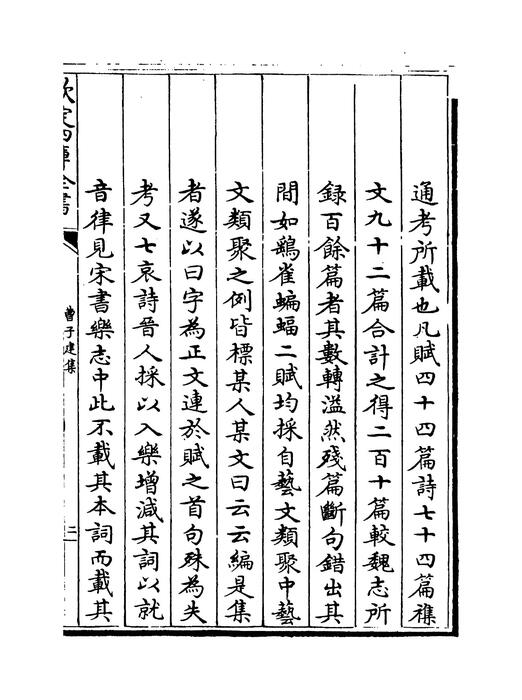 通考所載也凡賦四十四篇詩七十四篇襍
文九十二篇合計之得二百十篇較魏志所
録百餘篇者其數轉溢然殘篇斷句錯出其
間如鷂雀蝙蝠二賦均採自藝文類聚中藝
文類聚之例皆標某人某文曰云云編是集
者遂以曰字為正文連於賦之首句殊為失
考又七哀詩晉人採以入樂增減其詞以就
音律見宋書樂志中此不載其本詞而載其
欽定四庫全書
曹子建集
二